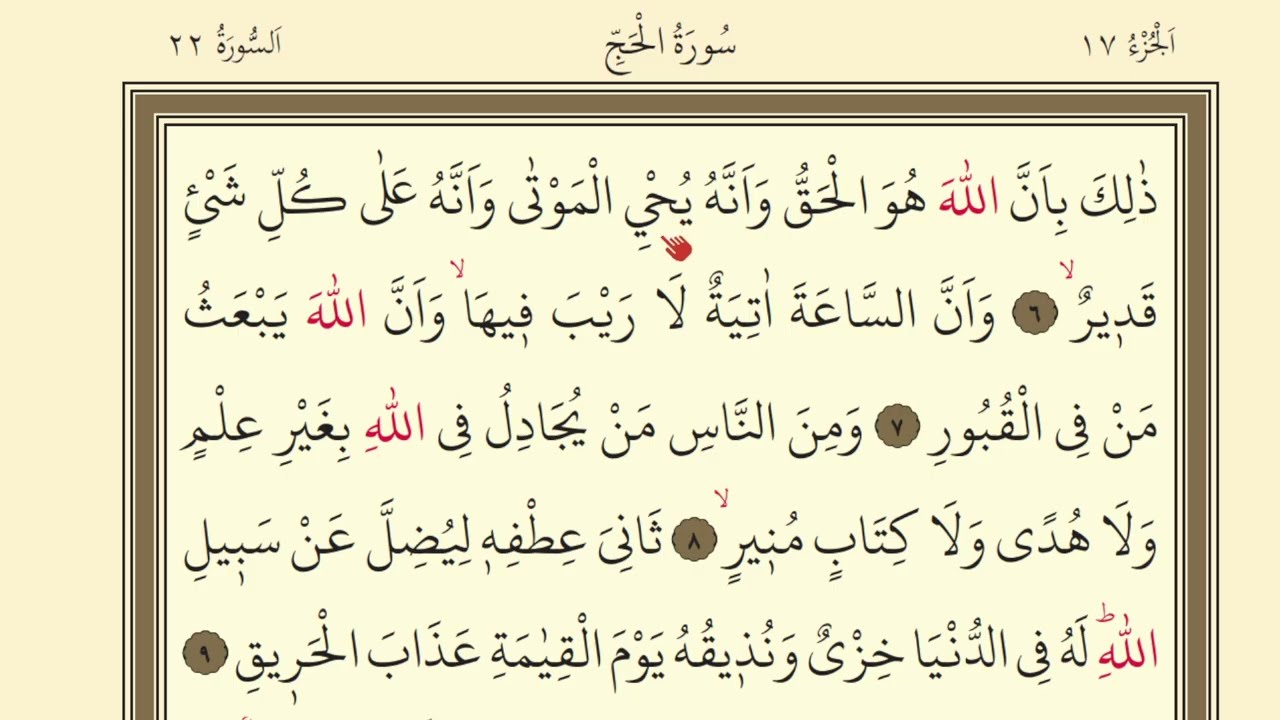 اَلْجُزْءُ ١٧ سُورَةُ الْحَجِّ اَلسُّورَةُ ٢٢
ذٰلِكَ بِاَنَّ اللّٰهَ هُوَ الْحَقُّ وَاَنَّهُ يُحْيِ الْمَوْتٰى وَاَنَّهُ عَلٰى كُلِّ شَىْءٍ
قَدٖيرٌۙ ٦ وَاَنَّ السَّاعَةَ اٰتِيَةٌ لَا رَيْبَ فٖيهَاۙ وَاَنَّ اللّٰهَ يَبْعَثُ
مَنْ فِى الْقُبُورِ ٧ وَمِنَ النَّاسِ مَنْ يُجَادِلُ فِى اللّٰهِ بِغَيْرِ عِلْمٍ
وَلَا هُدًى وَلَا كِتَابٍ مُنٖيرٍۙ ٨ ثَانِىَ عِطْفِهٖ لِيُضِلَّ عَنْ سَبٖيلِ
اللّٰهِؕ لَهُ فِى الدُّنْيَا خِزْىٌ وَنُذٖيقُهُ يَوْمَ الْقِيٰمَةِ عَذَابَ الْحَرٖيقِ ٩